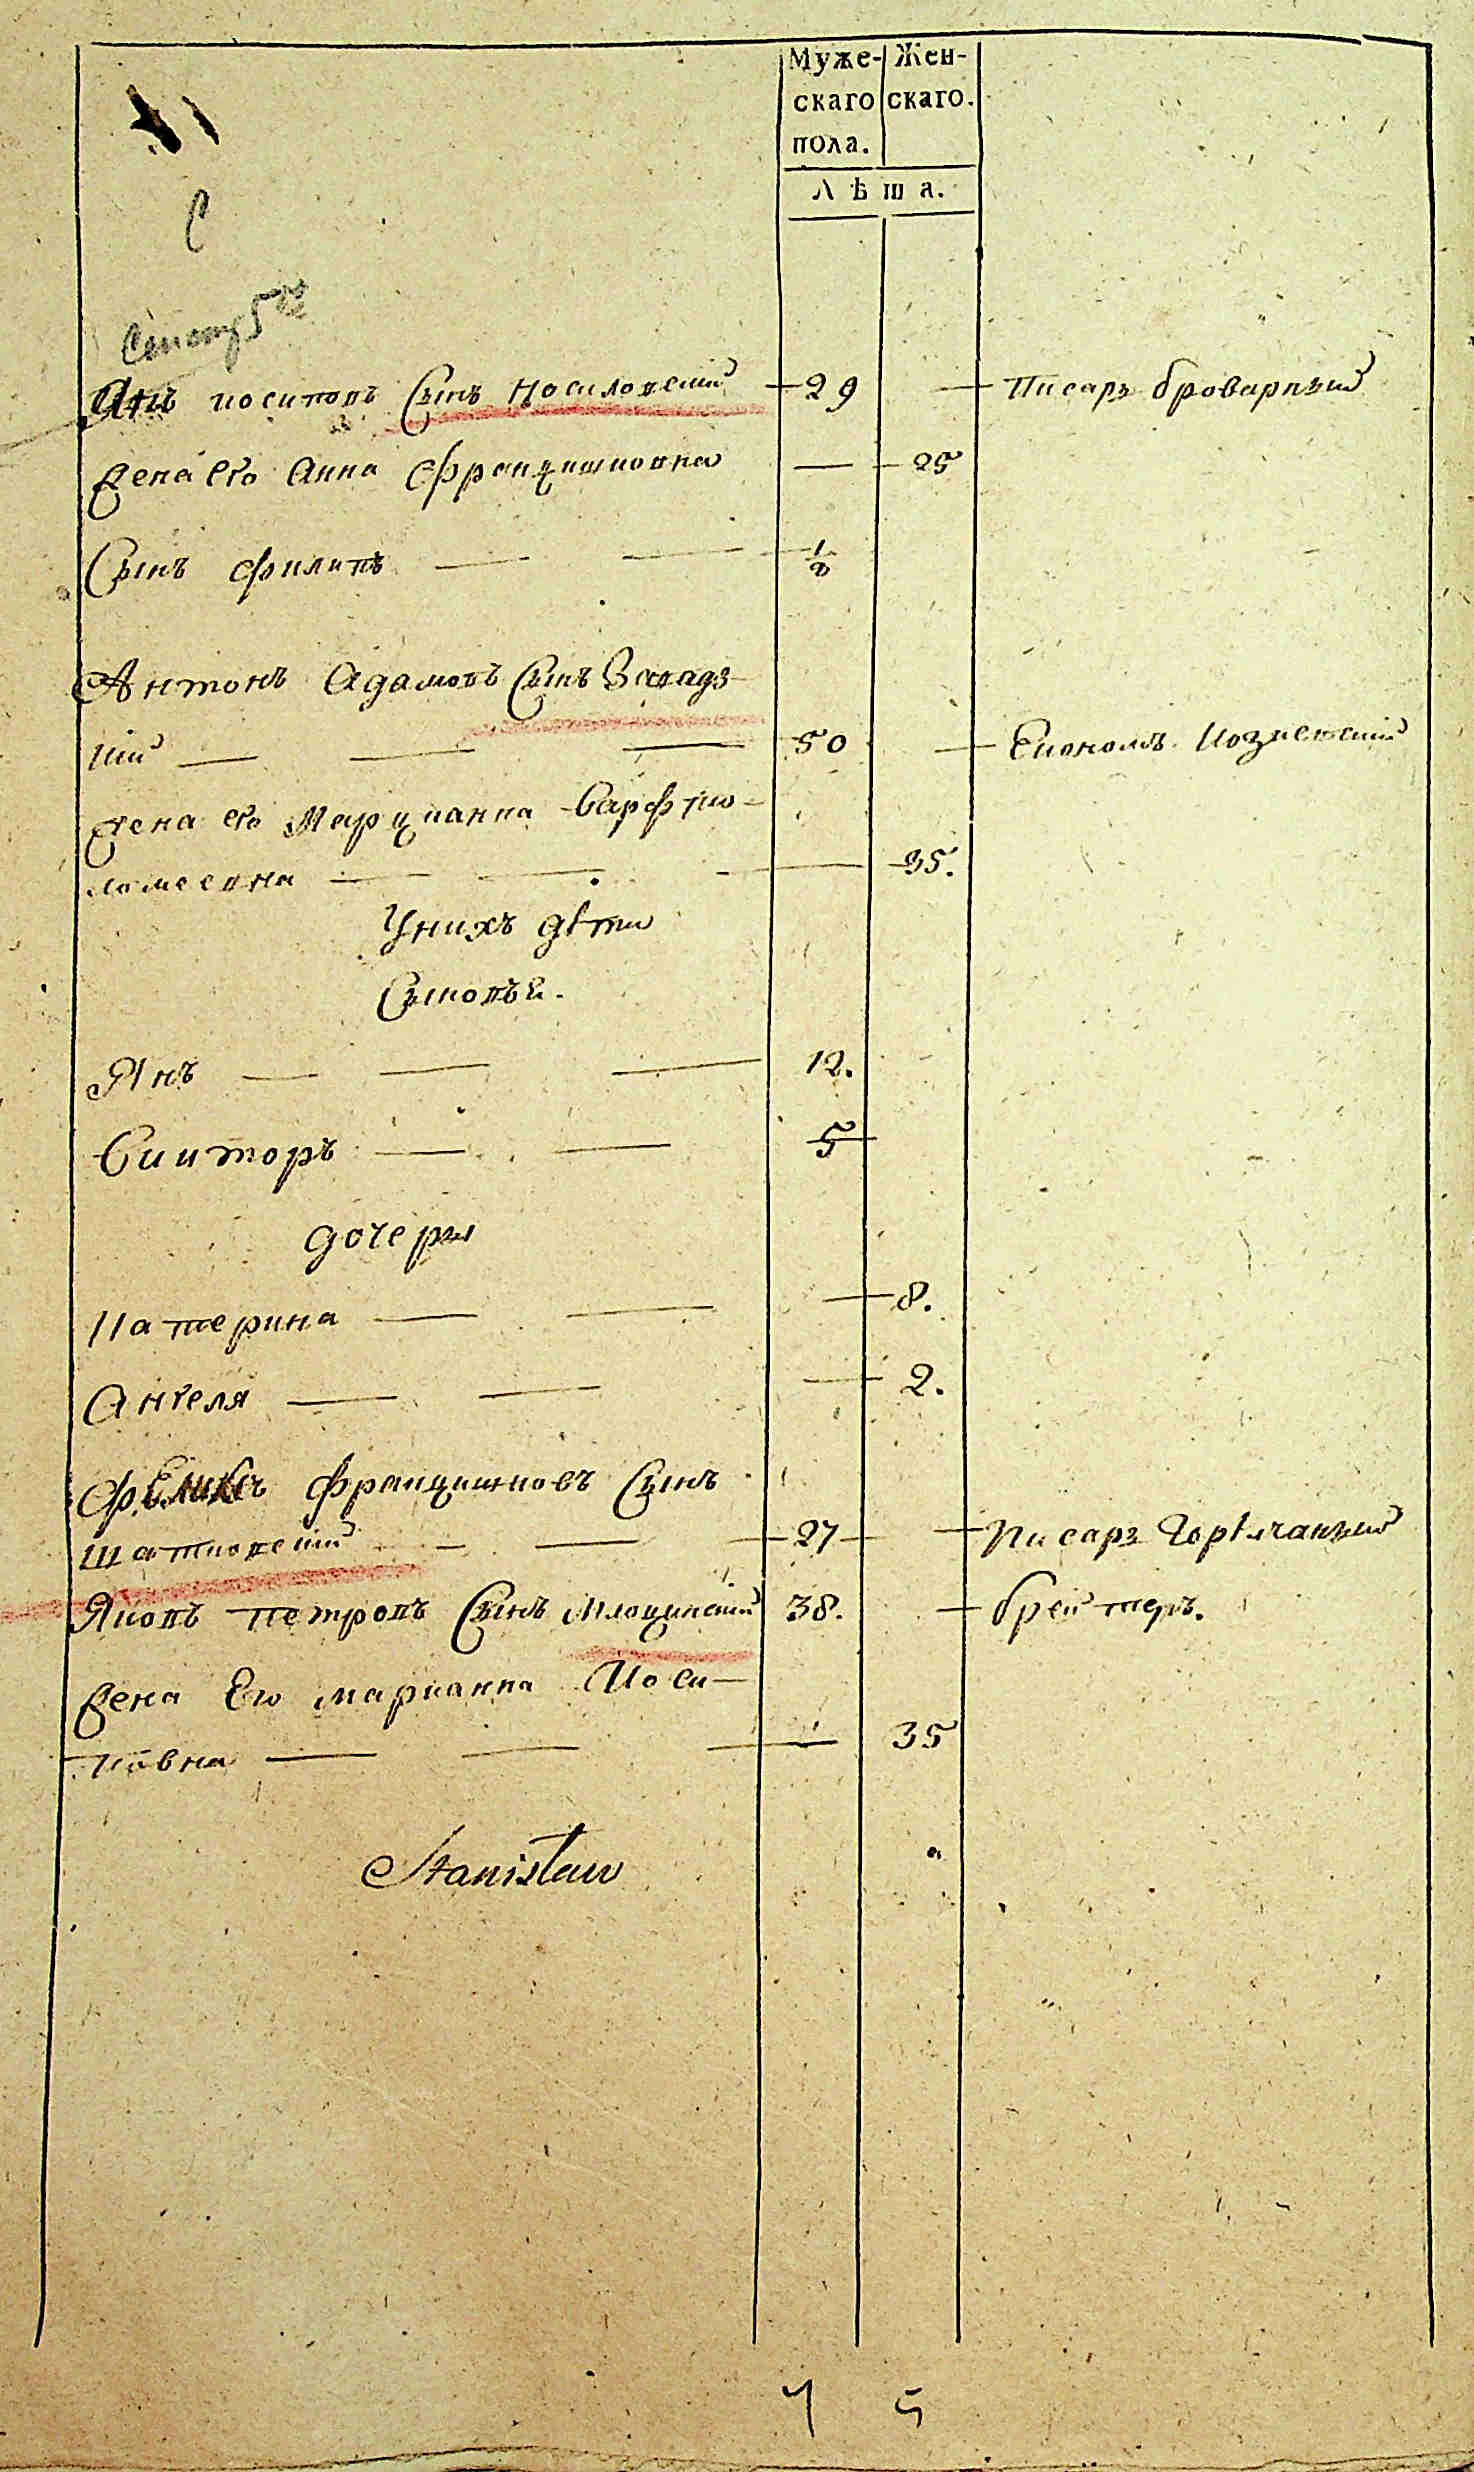 Муже- Жен-
скаго скаго.
пола.
Лѣта.
С
Янъ иосиповъ Сынъ Носиловскій 29 Писарь броварный
жена его Анна Францишковна 25
Сынъ Филипъ 1/2
Антонъ Адамовъ Сынъ Завадз-
кій 50 Економъ
жена его Марцианна Варфто-
ломеевна 35.
У нихъ дѣти
Сыновья.
Янъ 12.
Викторъ 5
дочеры
Катерина 8.
Ангеля 2.
Феликсъ Францишковъ Сынъ
Шатковскій 27 Писарь Горѣлчаный
Яковъ Петровъ Сынъ Млоцинскій 38. брейтеръ.
жена Его марианна Иоси-
повна 35
Stanisław
7 5